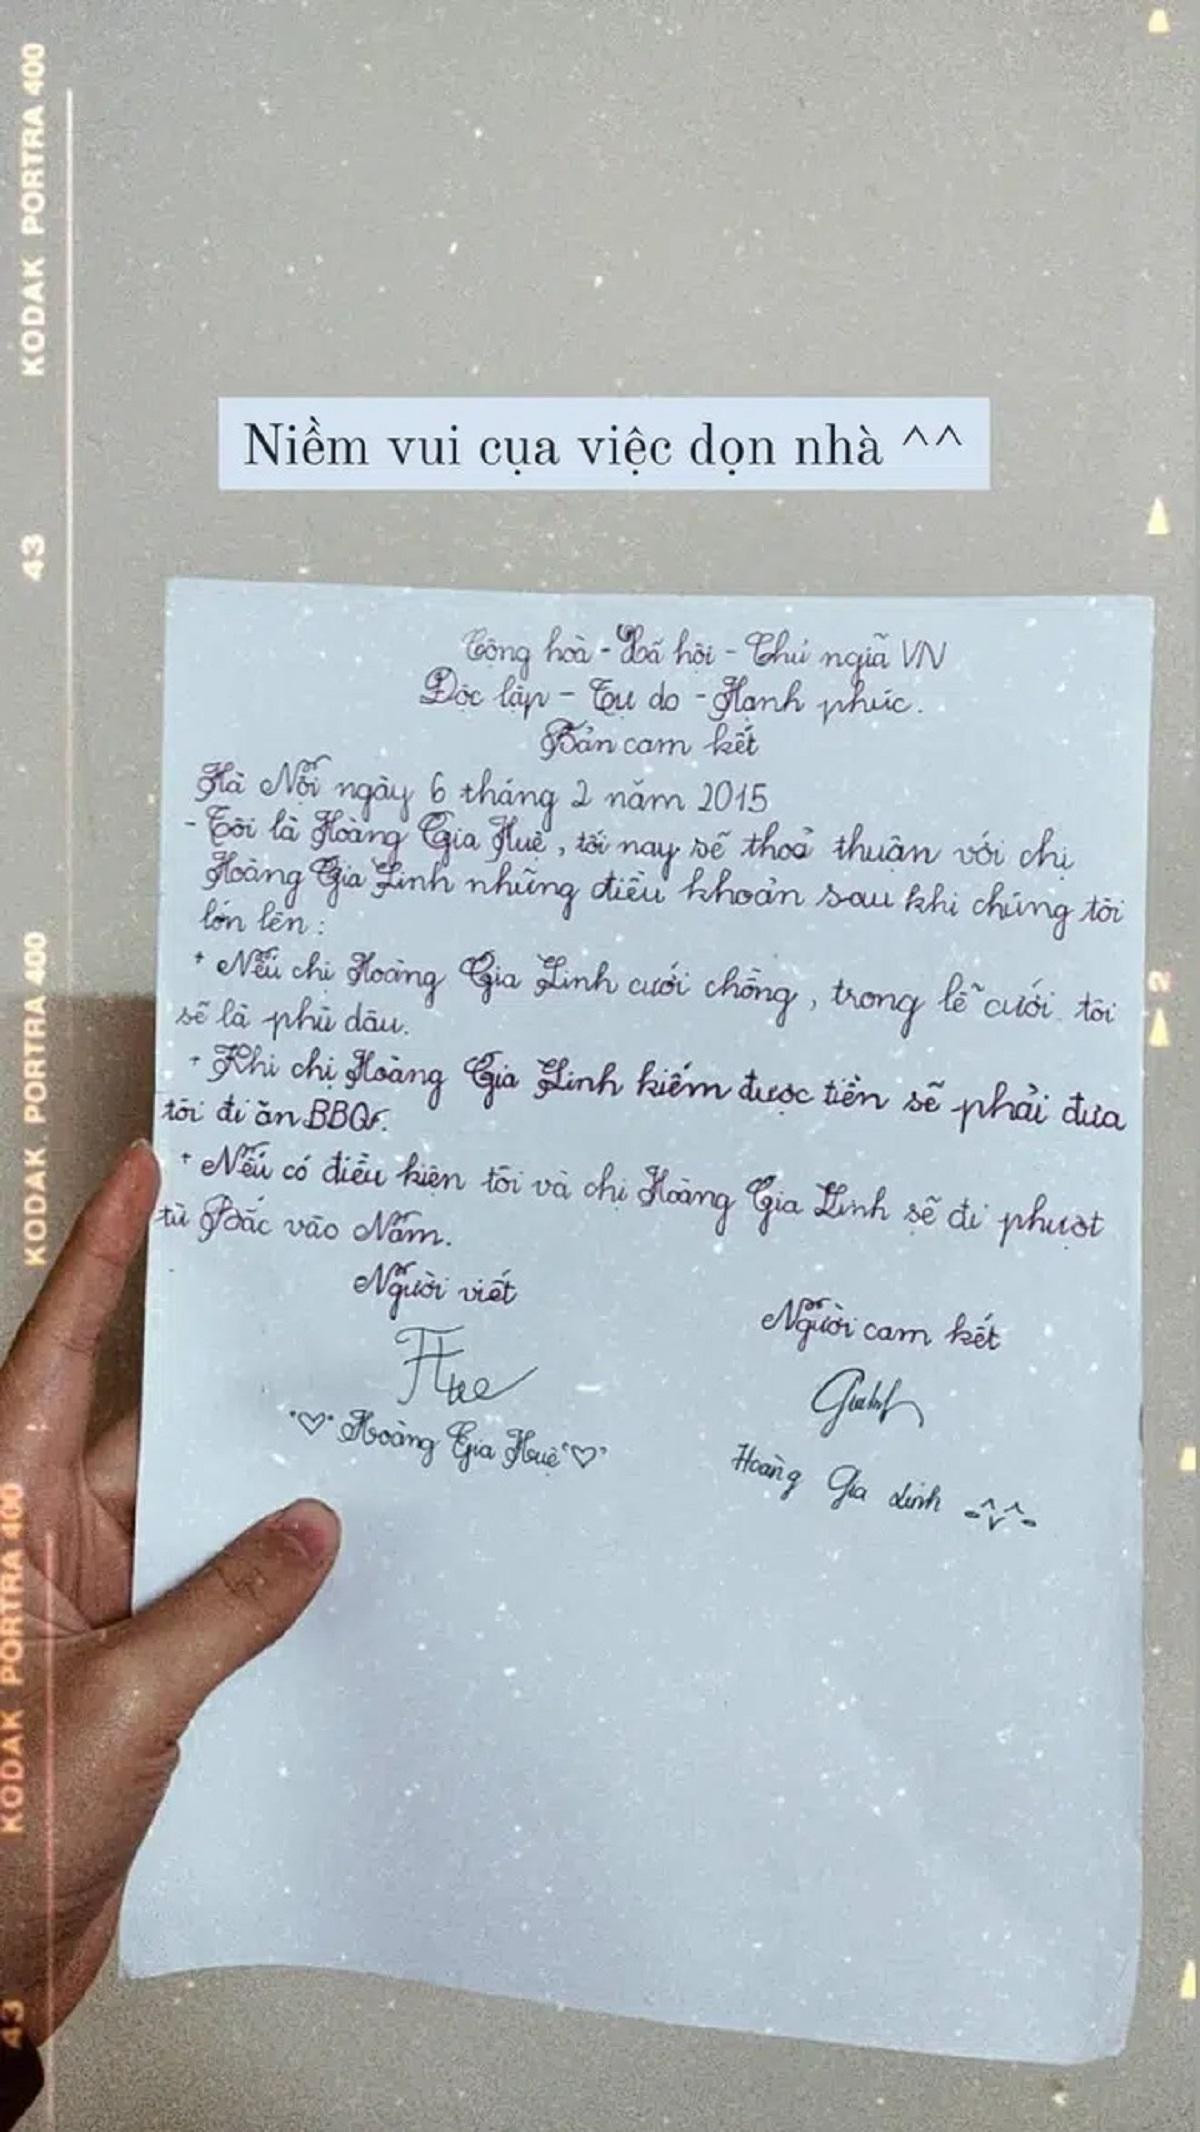 KODAK PORTRA 400
43
Niềm vui cụa việc dọn nhà ^^
Cộng hoà - Xã hội - Chủ ngiã VN
Độc lập - Tự do - Hạnh phúc.
Bản cam kết
Hà Nội ngày 6 tháng 2 năm 2015
- Tôi là Hoàng Gia Huệ, tối nay sẽ thoả thuận với chị
Hoàng Gia Linh những điều khoản sau khi chúng tôi
lớn lên:
+ Nếu chị Hoàng Gia Linh cưới chồng, trong lễ cưới tôi
sẽ là phù dâu.
+ Khi chị Hoàng Gia Linh kiếm được tiền sẽ phải đưa
tôi đi ăn BBQ.
+ Nếu có điều kiện tôi và chị Hoàng Gia Linh sẽ đi phượt
từ Bắc vào Nam.
Người viết
Người cam kết
Hue
♡ Hoàng Gia Huệ ♡
Hoàng Gia Linh
KODAK PORTRA 400
KODAK PORTRA 400
43
2